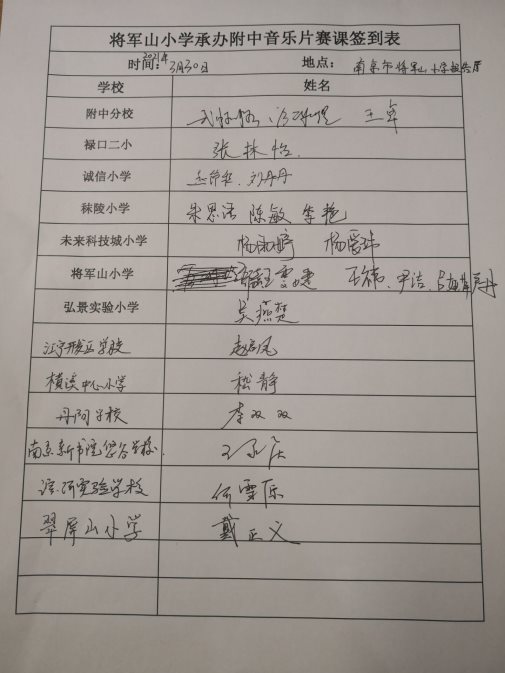 将军山小学承办附中音乐片赛课签到表
时间：2021年3月30日 地点：南京市将军山小学报告厅
学校 姓名
附中分校 王卓
禄口二小 张林怡
诚信小学 刘丹丹
秣陵小学 朱思洁 陈敏 李艳
未来科技城小学
将军山小学 王祎、尹洁、
弘景实验小学 吴燕楚
江宁开发区学校
横溪中心小学 嵇静
丹阳学校 李双双
南京新书院悠谷学校
滨河实验学校 何雯乐
翠屏山小学 戴正义